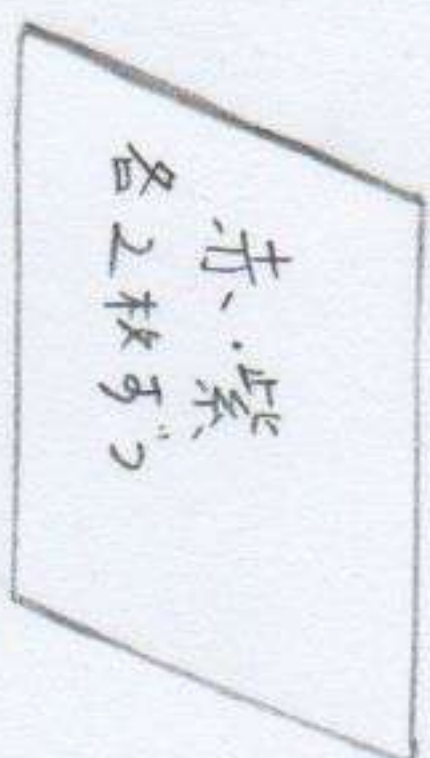 赤・紫
各2枚ずつ